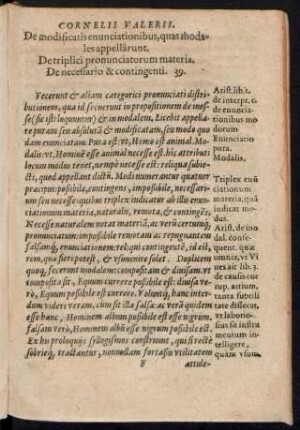 CORNELII VALERII.
De modificatis enunciationibus, quas modales appellârunt.
De triplici pronunciatorum materia.
De necessario & contingenti. 39.
Fecerunt & aliam categorici pronunciati distri
butionem, qua id secuerunt in propositionem de ines-
se (sic est loquuntur) & in modalem, Licebit appella-
re puram seu absolutā & modificatam, seu modo quo
dam enunciatam Pura est: vt, Homo est animal. Mo
dalis: vt, Hominē esse animal necesse est. hic attributi
locum modus tenet, nempe necesse est: reliqua subie-
cti, quod appellant dictū. Modi numerantur quatuor
præcipui: possibile, contingens, impossibile, necessari-
um seu necesse: quibus triplex indicatur ab illis enun-
ciationum materia, naturalis, remota, & contingēs,
Necesse naturalem notat materiā, ac verā certamq́;
pronunciationem: impossibile remotam ac repugnantem
falsamq́; enunciationem: reliqui contingentē, id est,
rem, quæ fieri potest, & vsu venire solet. Duplicem
quoq́; fecerunt modalem: compositam & diuisam. vt
composita sit, Equum currere possibile est: diuisa ve-
rò, Equo possibile est currere. Voluntq́; hanc inter-
dum videri veram, cùm sit illa falsa: ac verā quidem
esse hanc, Hominem album possibile est esse nigrum,
falsam verò, Hominem albū esse nigrum possibile est.
Ex his proloquijs syllogismos construunt, qui si rectè
sobrieq́; tractantur, nonnullam fortassis vtilitatem
F
attule-
Arist. lib. 1.
de interpr. c.
de enuncia-
tionibus mo
dorum
Enunciatio
pura.
Modalis.
Triplex enū
ciationum
materia, quā
indicat mo-
dus.
Arist. de mo
dal. conse-
quent. quæ
omnia, vt Vi
ues ait lib. 3.
de causis cor
rup. artium,
tanta subtili
tate dislecat,
vt laborio-
sius se instru
mentum in-
telligere,
quàm vsum